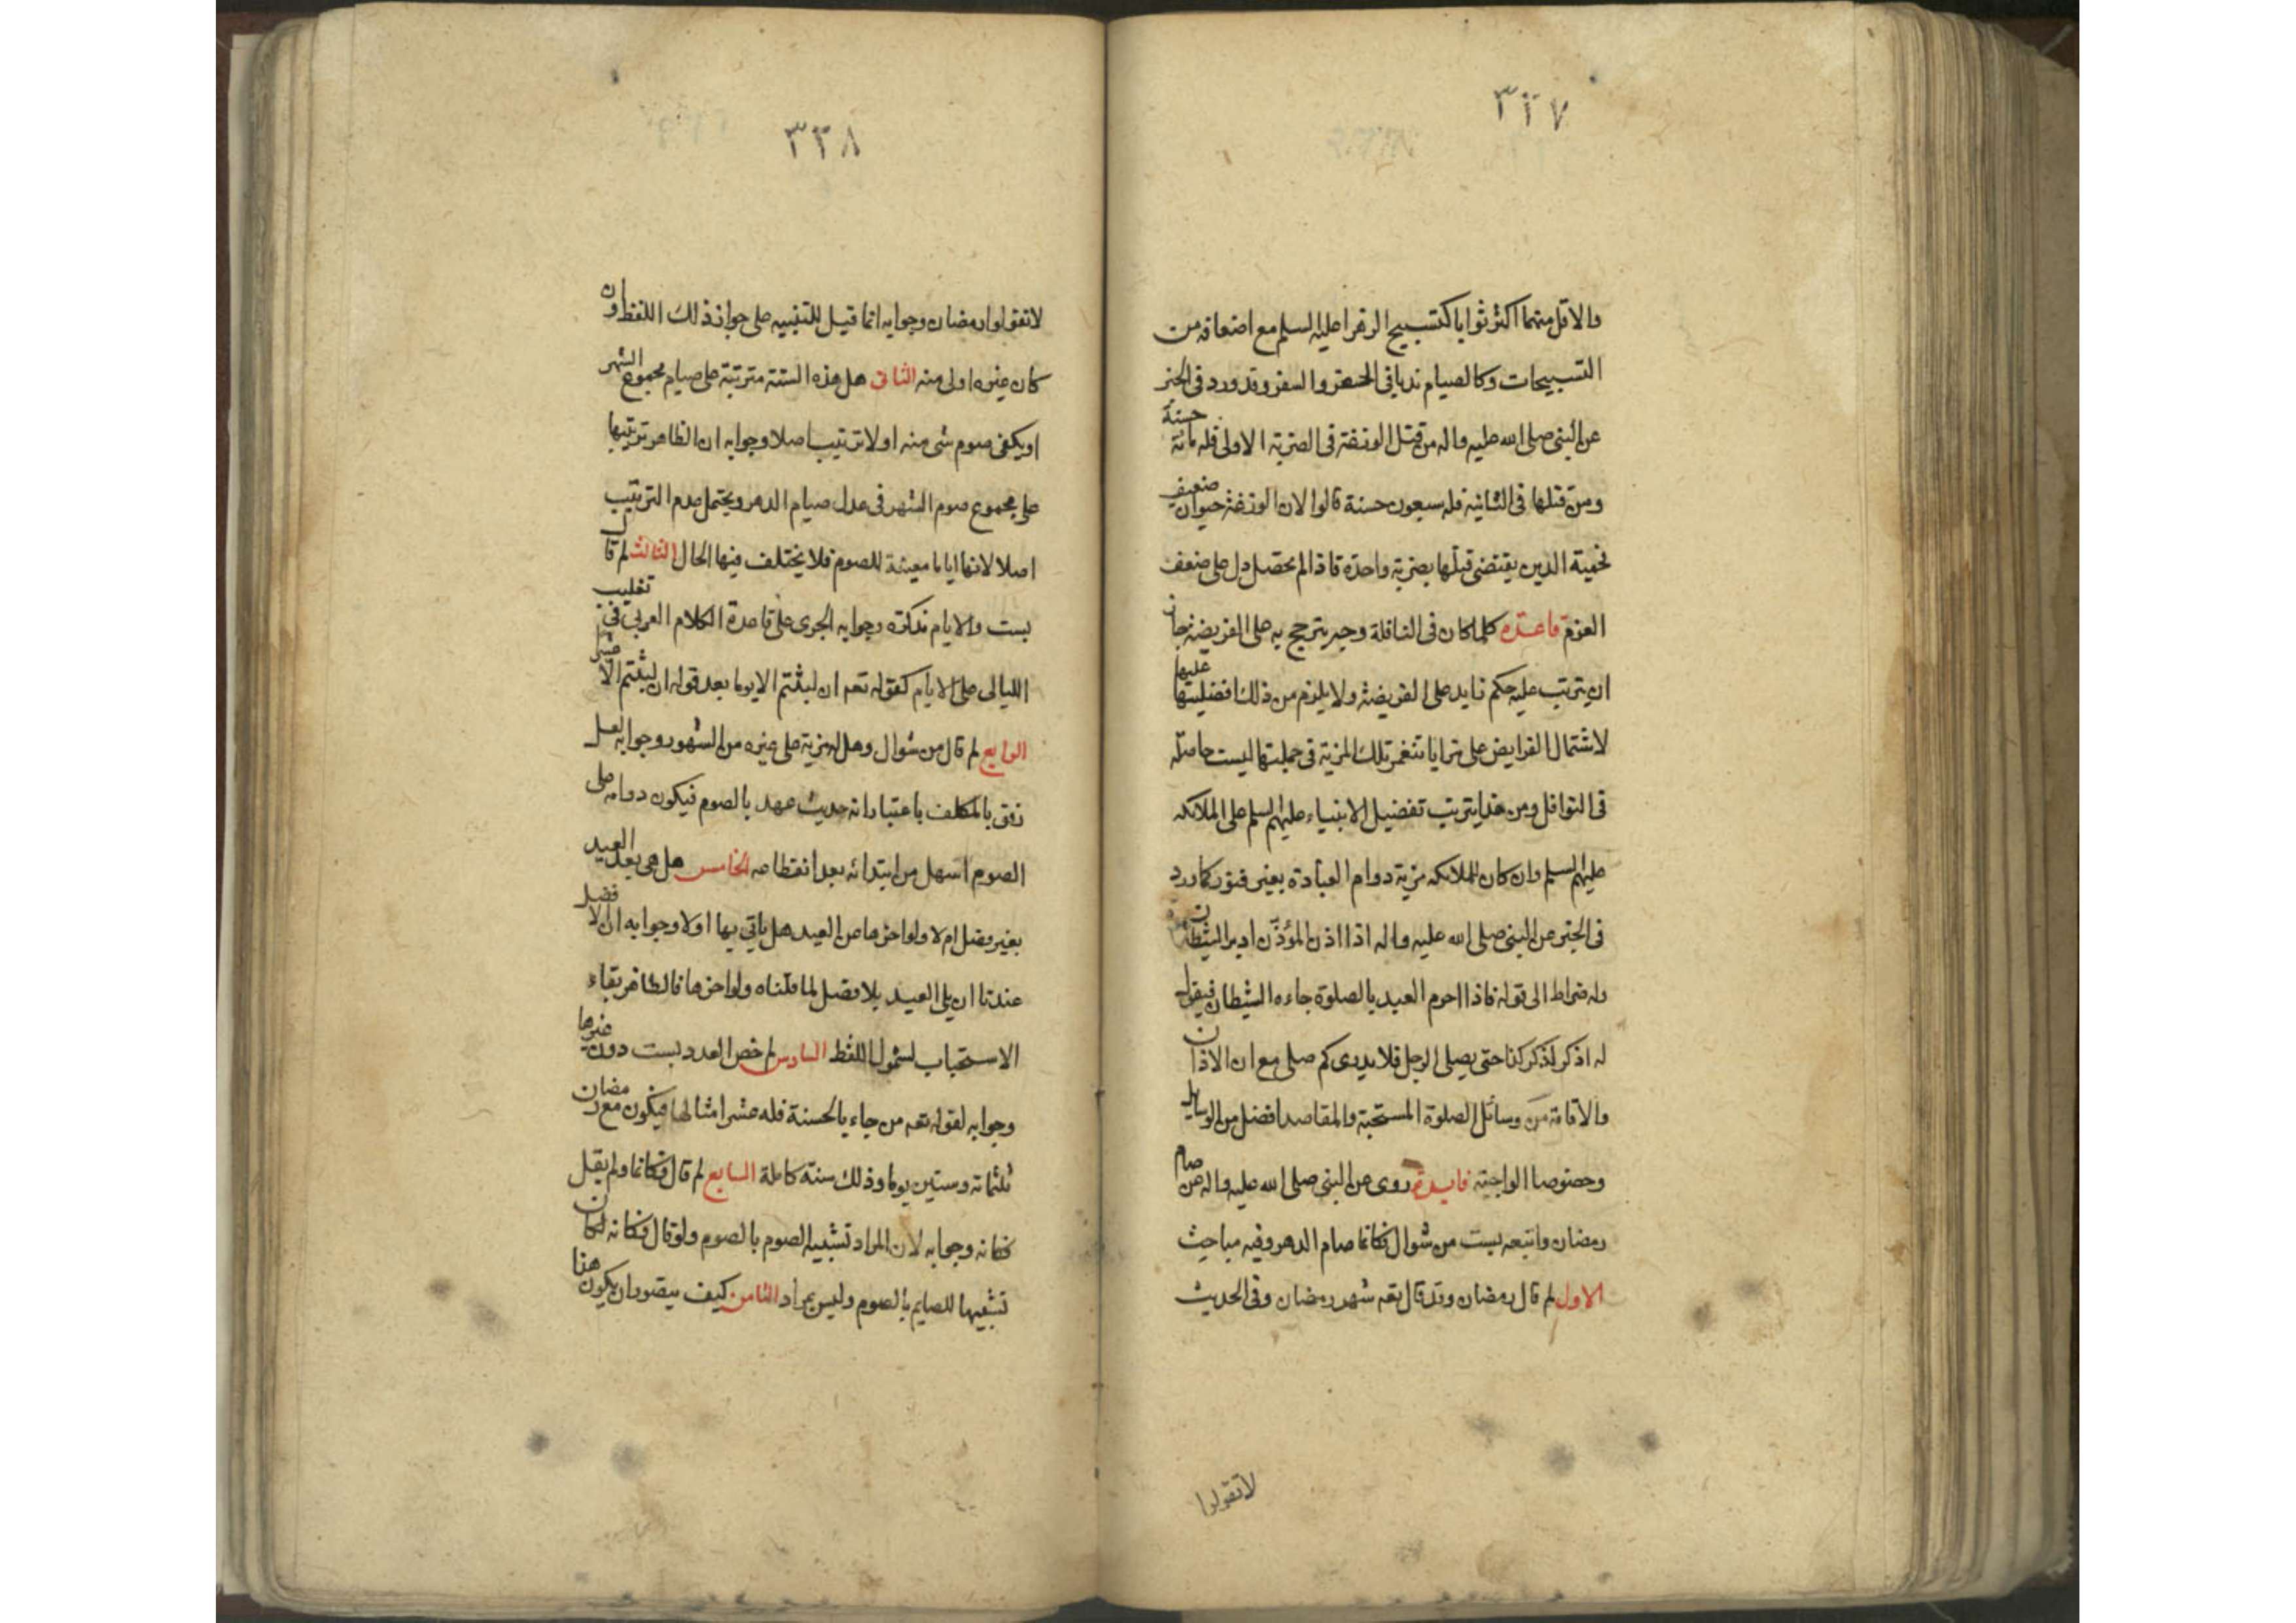 ٣٢٧
والاقل منهما اكثر ثوابا كتسبيح الزهرا عليها لسلم مع اضعافه من
التسبيحات وكالصيام ندبا في الحضر والسفر وقد ورد في الخبر
عن النبي صلى الله عليه واله من قتل الوزغة في الضربة الاولى فله مائة حسنة
ومن قتلها في الثانية فله سبعون حسنة قالوا لان الوزغة حيوان ضعيف
فحمية الدين يقتضي قتلها بضربة واحدة فاذا لم يحصل دل على ضعف
العزم قاعدة كلما كان في النافلة وجه يترجح به على الفريضة جاز
ان يترتب عليه حكم زايد على الفريضة ولا يلزم من ذلك افضليتها عليها
لاشتمال الفرايض على مزايا تنغمر تلك المزية في جملتها ليست حاصله
في النوافل ومن هذا يترتب تفضيل الانبياء عليهم لسلم على الملائكه
عليهم لسلم وان كان للملائكه مزية دوام العبادة بغير فتور كما ورد
في الخبر عن النبي صلى الله عليه واله اذا اذن المؤذن ادبر الشيطان
وله ضراط الى قوله فاذا احرم العبد بالصلوة جاءه الشيطان فيقول
له اذكر كذا ذكر كذا حتى يصلى الرجل فلا يدرى كم صلى مع ان الاذان
والاقامة من وسائل الصلوة المستحبة والمقاصد افضل من الوسايل
وخصوصا الواجبة فايدة روى عن النبي صلى الله عليه واله من صام
رمضان واتبعه بست من شوال فكانما صام الدهر وفيه مباحث
الاول لم قال رمضان وقد قال تعه شهر رمضان وفي الحديث
لا تقولوا
٣٢٨
لا تقولوا رمضان وجوابه انما قيل للتنبيه على جواز ذلك اللفظ وان
كان غيره اولى منه الثاني هل هذه الستة مترتبة على صيام مجموع الشهر
او يكفى صوم شى منه اولا ترتيب اصلا وجوابه ان الظاهر ترتيبها
على مجموع صوم الشهر في عدل صيام الدهر ويحتمل عدم الترتيب
اصلا لانها اياما معينة للصوم فلا يختلف فيها الحال الثالث لم قال
بست والايام مذكرة وجوابه الجرى على قاعدة الكلام العربي في تغليب
الليالى على الايام كقوله تعه ان لبثتم الا يوما بعد قوله ان لبثتم الا عشرا
الرابع لم قال من شوال وهل له مزية على غيره من الشهور وجوابه لعل
رفق بالمكلف باعتبار انه حديث عهد بالصوم فيكون دوامه على
الصوم اسهل من ابتدائه بعد انقطاعه الخامس هل هي بعد العيد
بغير فصل ام لا ولو اخرها عن العيد هل ياتي بها اولا وجوابه ان الافضل
عندنا ان يلى العيد بلا فصل لما قلناه ولو اخرها فالظاهر بقاء
الاستحباب لشمول اللفظ السادس لم خص العدد بست دون غيرها
وجوابه لقوله تعه من جاء بالحسنة فله عشر امثالها فيكون مع رمضان
ثلثمائة وستين يوما وذلك سنة كاملة السابع لم قال فكانما ولم يقل
فكانه وجوابه لان المراد تشبيه الصوم بالصوم ولو قال فكانه لكان
تشبيها للصايم بالصوم وليس بمراد الثامن كيف يتصور ان يكون هنا